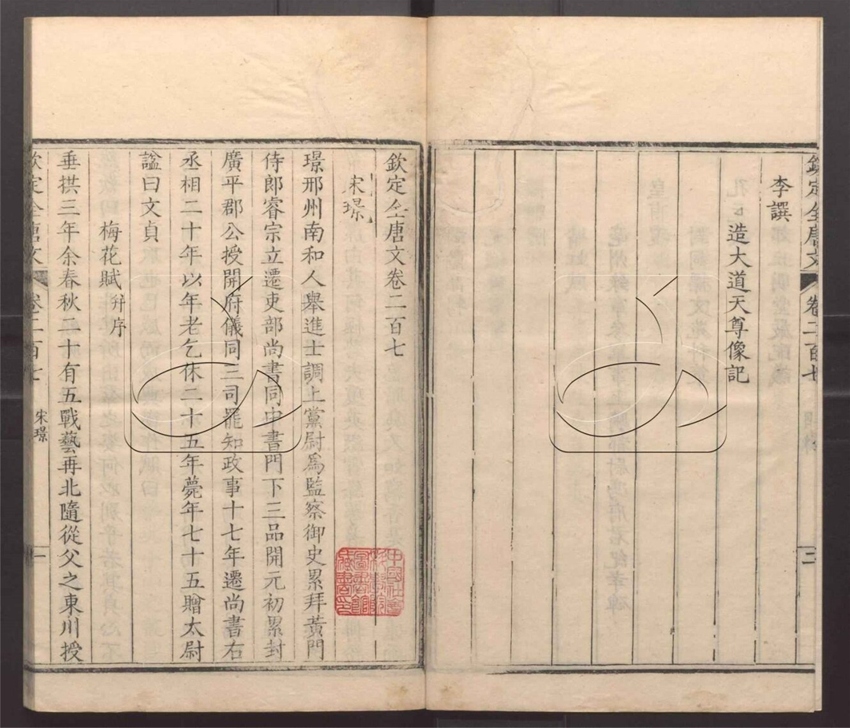 欽定全唐文卷二百七
李譔
造大道天尊像記
二
欽定全唐文卷二百七
宋璟
璟邢州南和人舉進士調上黨尉爲監察御史累拜黃門
侍郎睿宗立遷吏部尚書同中書門下三品開元初累封
廣平郡公授開府儀同三司罷知政事十七年遷尚書右
丞相二十年以年老乞休二十五年薨年七十五贈太尉
諡曰文貞
梅花賦并序
垂拱三年余春秋二十有五戰藝再北隨從父之東川授
欽定全唐文卷二百七
宋璟
一